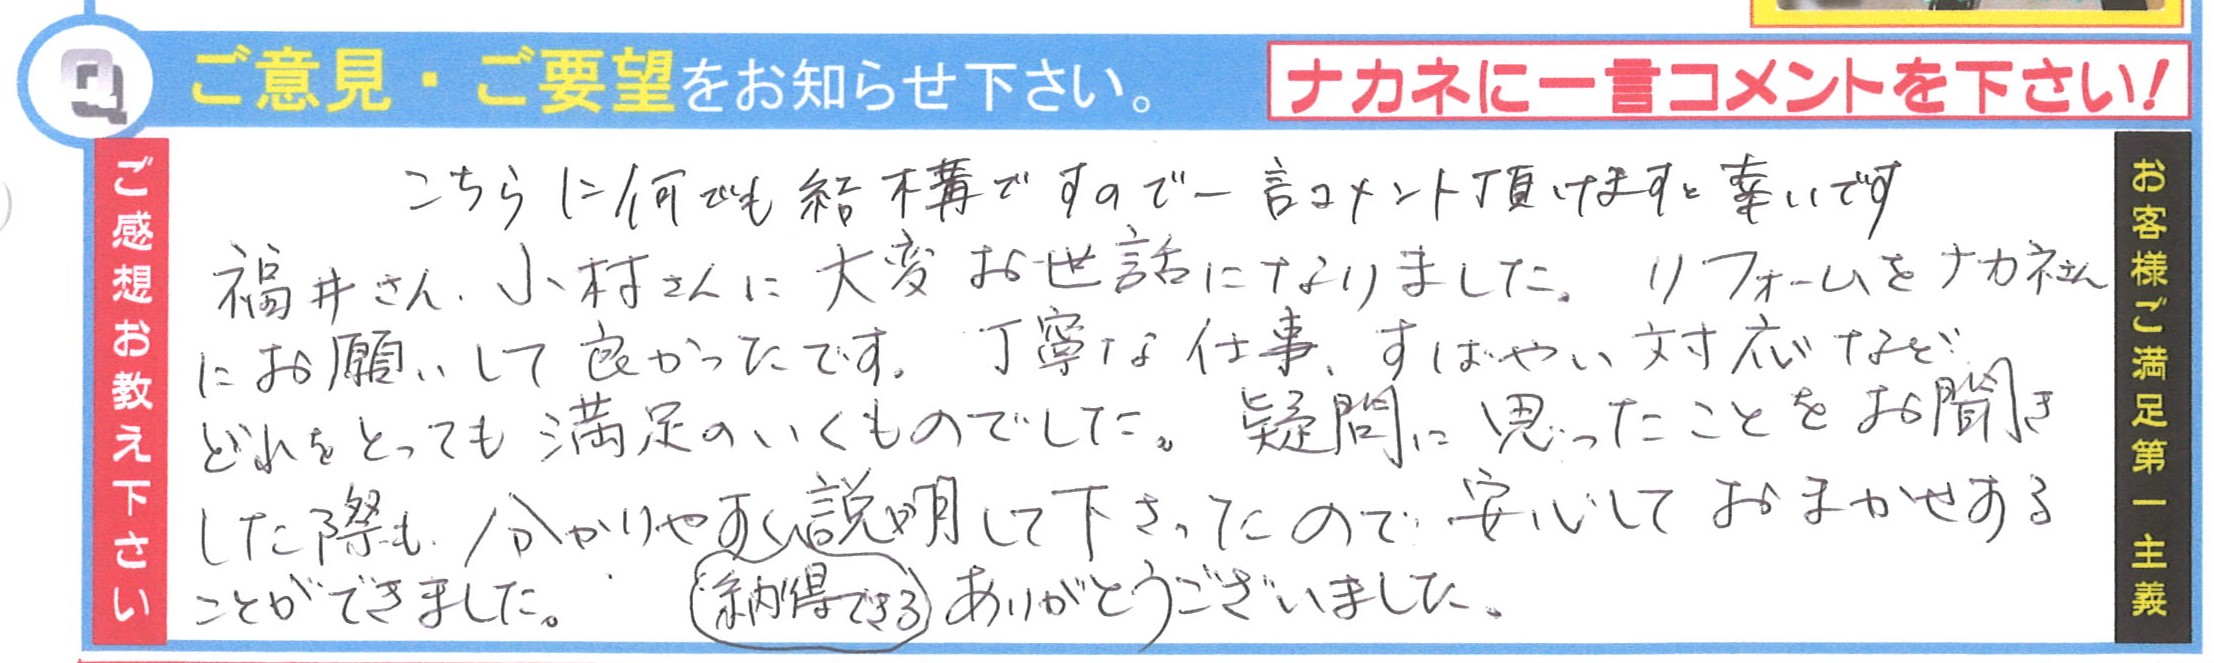 Q ご意見・ご要望をお知らせ下さい。
ナカネに一言コメントを下さい!
ご感想お教え下さい
こちらに何でも結構ですので一言コメント頂けますと幸いです
福井さん、小村さんに大変お世話になりました。リフォームをナカネさん
にお願いして良かったです。丁寧な仕事、すばやい対応など
どれをとっても満足のいくものでした。疑問に思ったことをお聞き
した際も、分かりやすく説明して下さったので、安心しておまかせする
ことができました。 納得できる ありがとうございました。
お客様ご満足第一主義